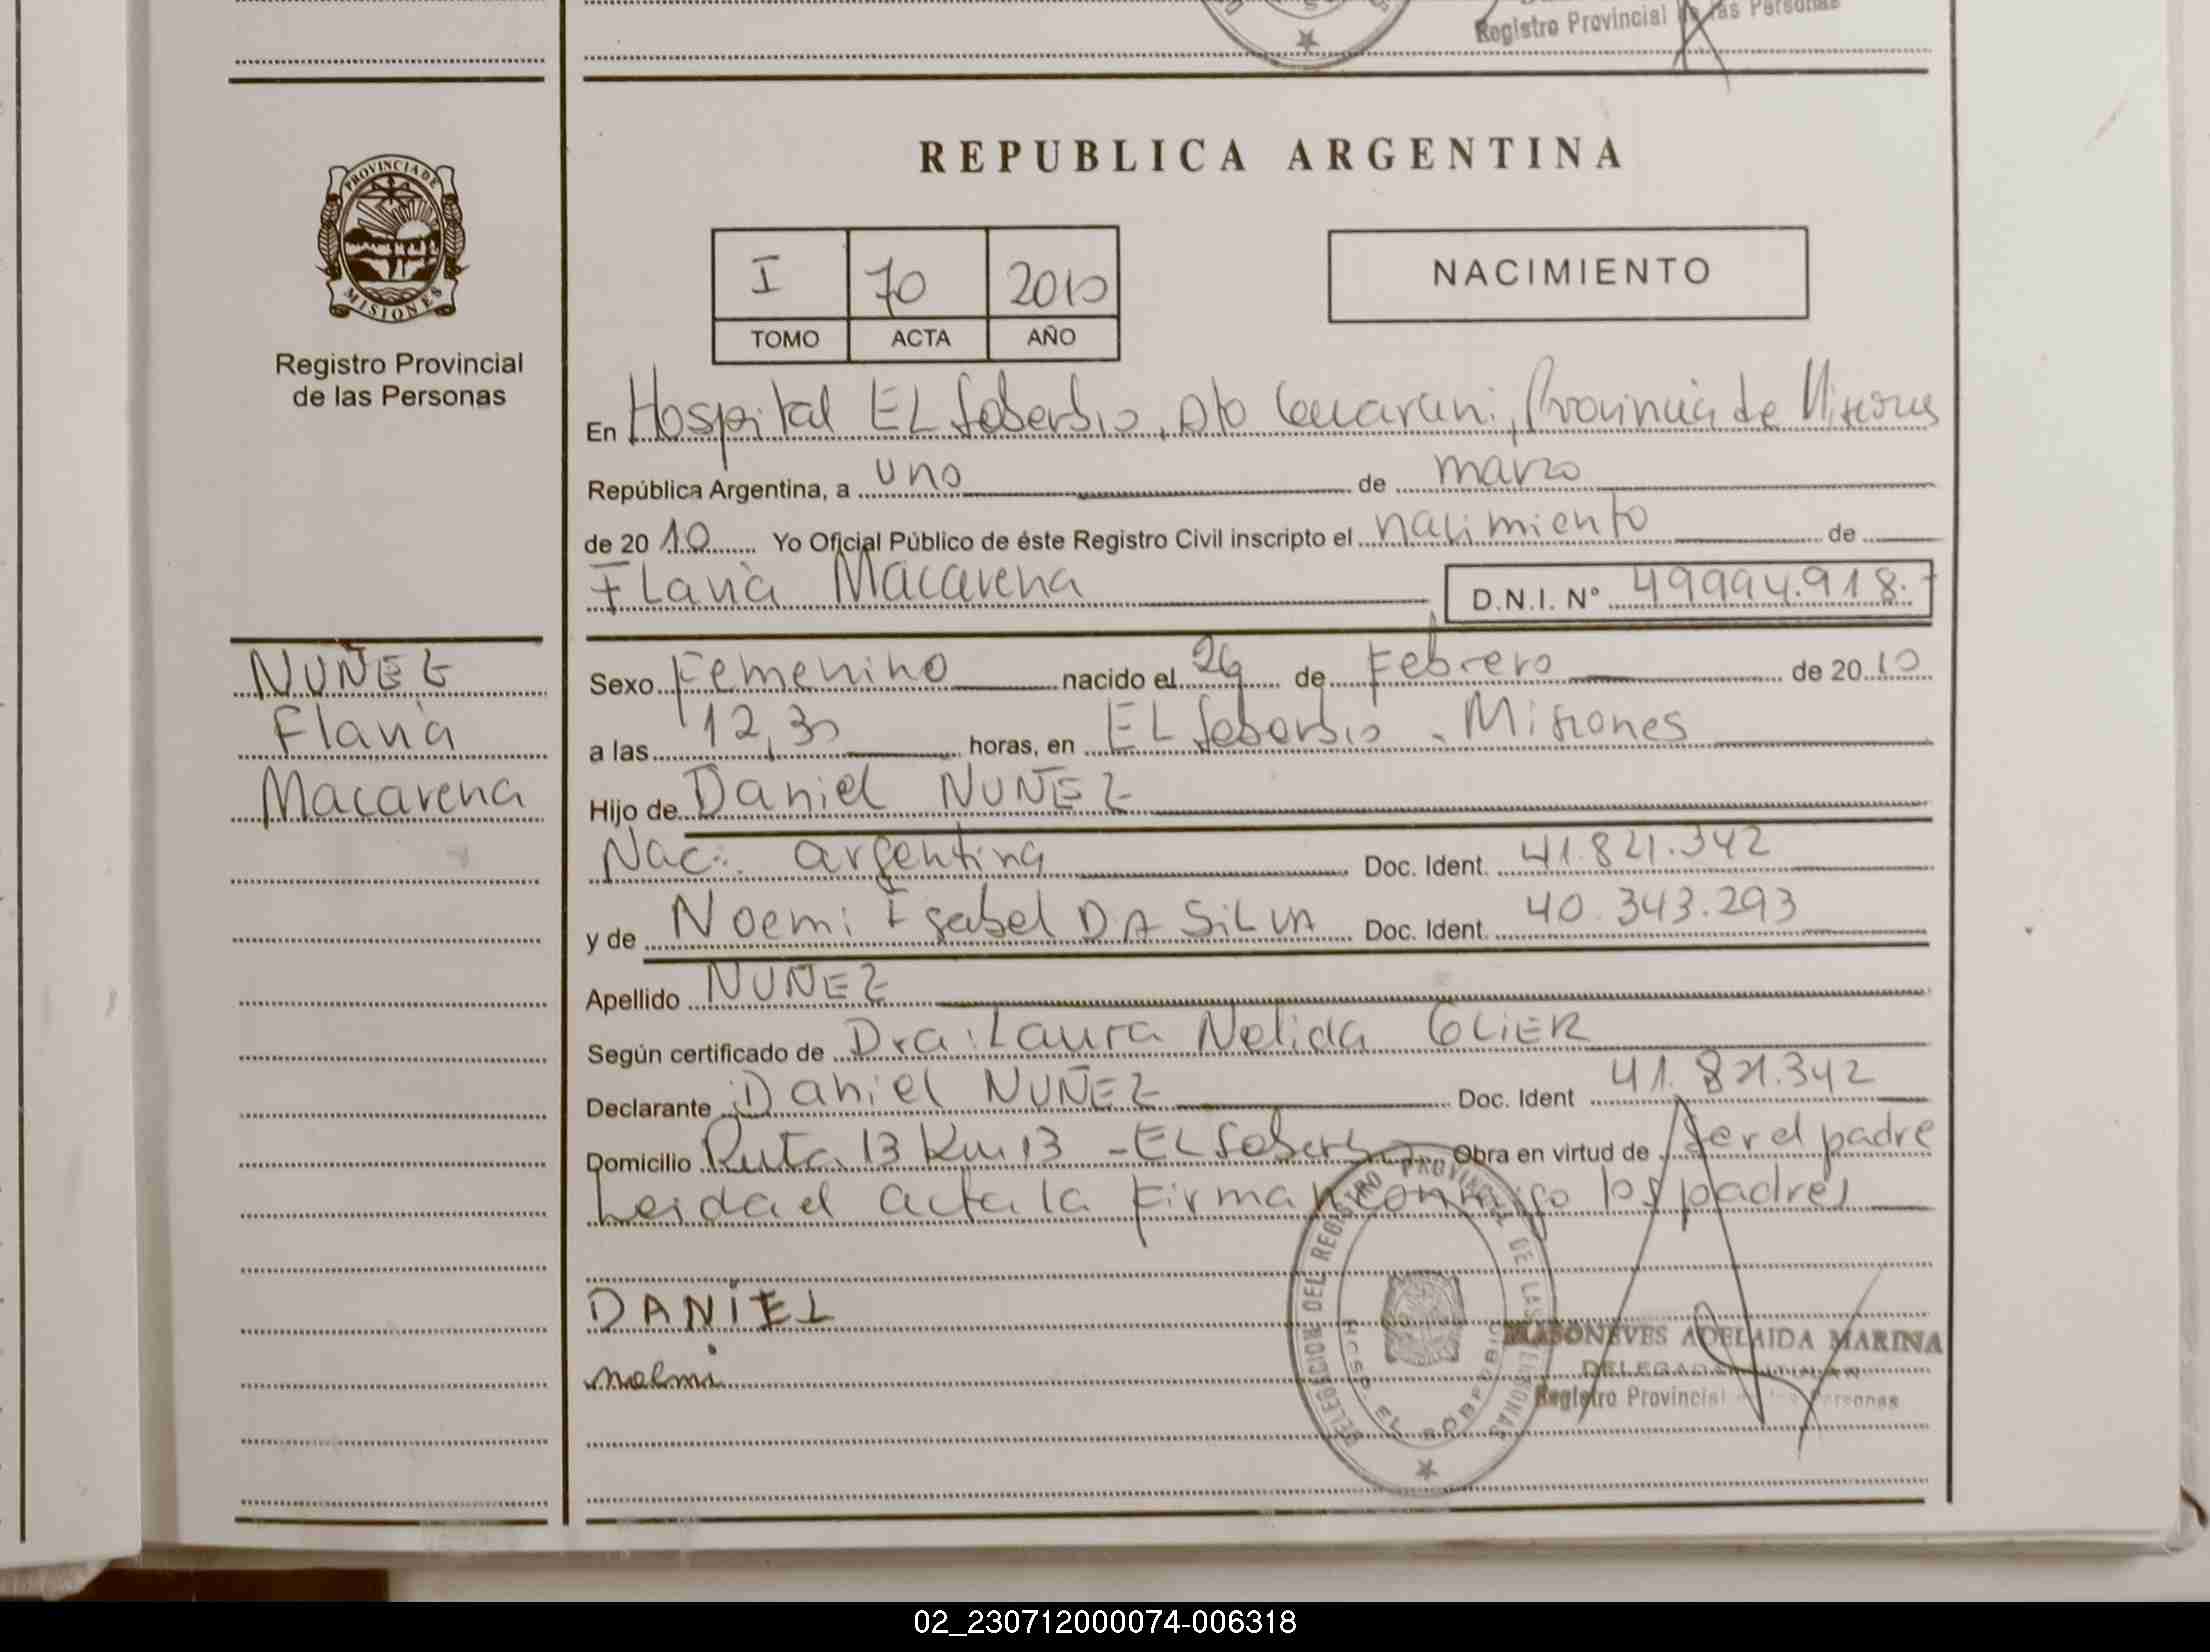 Registro Provincial de las Personas
REPUBLICA ARGENTINA
PROVINCIA DE MISIONES
Registro Provincial
de las Personas
I 70 2010
TOMO ACTA AÑO
NACIMIENTO
En Hospital EL Soberbio, Dto Guarani, Provincia de Misiones
República Argentina, a uno de marzo
de 2010 Yo Oficial Público de éste Registro Civil inscripto el nacimiento de
Flavia Macarena D.N.I. Nº 49994.918.-
NUÑEZ
Flavia
Macarena
Sexo Femenino nacido el de Febrero de 2010
a las 12,30 horas, en EL Soberbio - Misiones
Hijo de Daniel NUÑEZ
Nac: argentina Doc. Ident. 41.821.342
y de Noemi Isabel DA SILVA Doc. Ident. 40.343.293
Apellido NUÑEZ
Según certificado de Dra: Laura Nelida GLIER
Declarante Daniel NUÑEZ Doc. Ident 41.821.342
Domicilio Ruta 13 Km 13 - EL Soberbio Obra en virtud de Ser el padre
Leida el acta la firman conmigo los padres
DANIEL
DELEGACION DEL REGISTRO PROVINCIAL DE LAS PERSONAS
EL SOBERBIO
MASONEVES ADELAIDA MARINA
DELEGADA TITULAR
Registro Provincial de las Personas
02_230712000074-006318